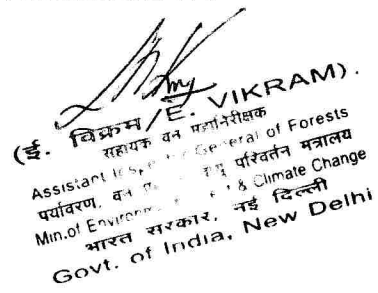 (ई. विक्रम/E. VIKRAM).
सहायक वन महानिरीक्षक
Assistant General of Forests
पर्यावरण, वन परिवर्तन मंत्रालय
Min.of & Climate Change
भारत सरकार, नई दिल्ली
Govt. of India, New Delhi